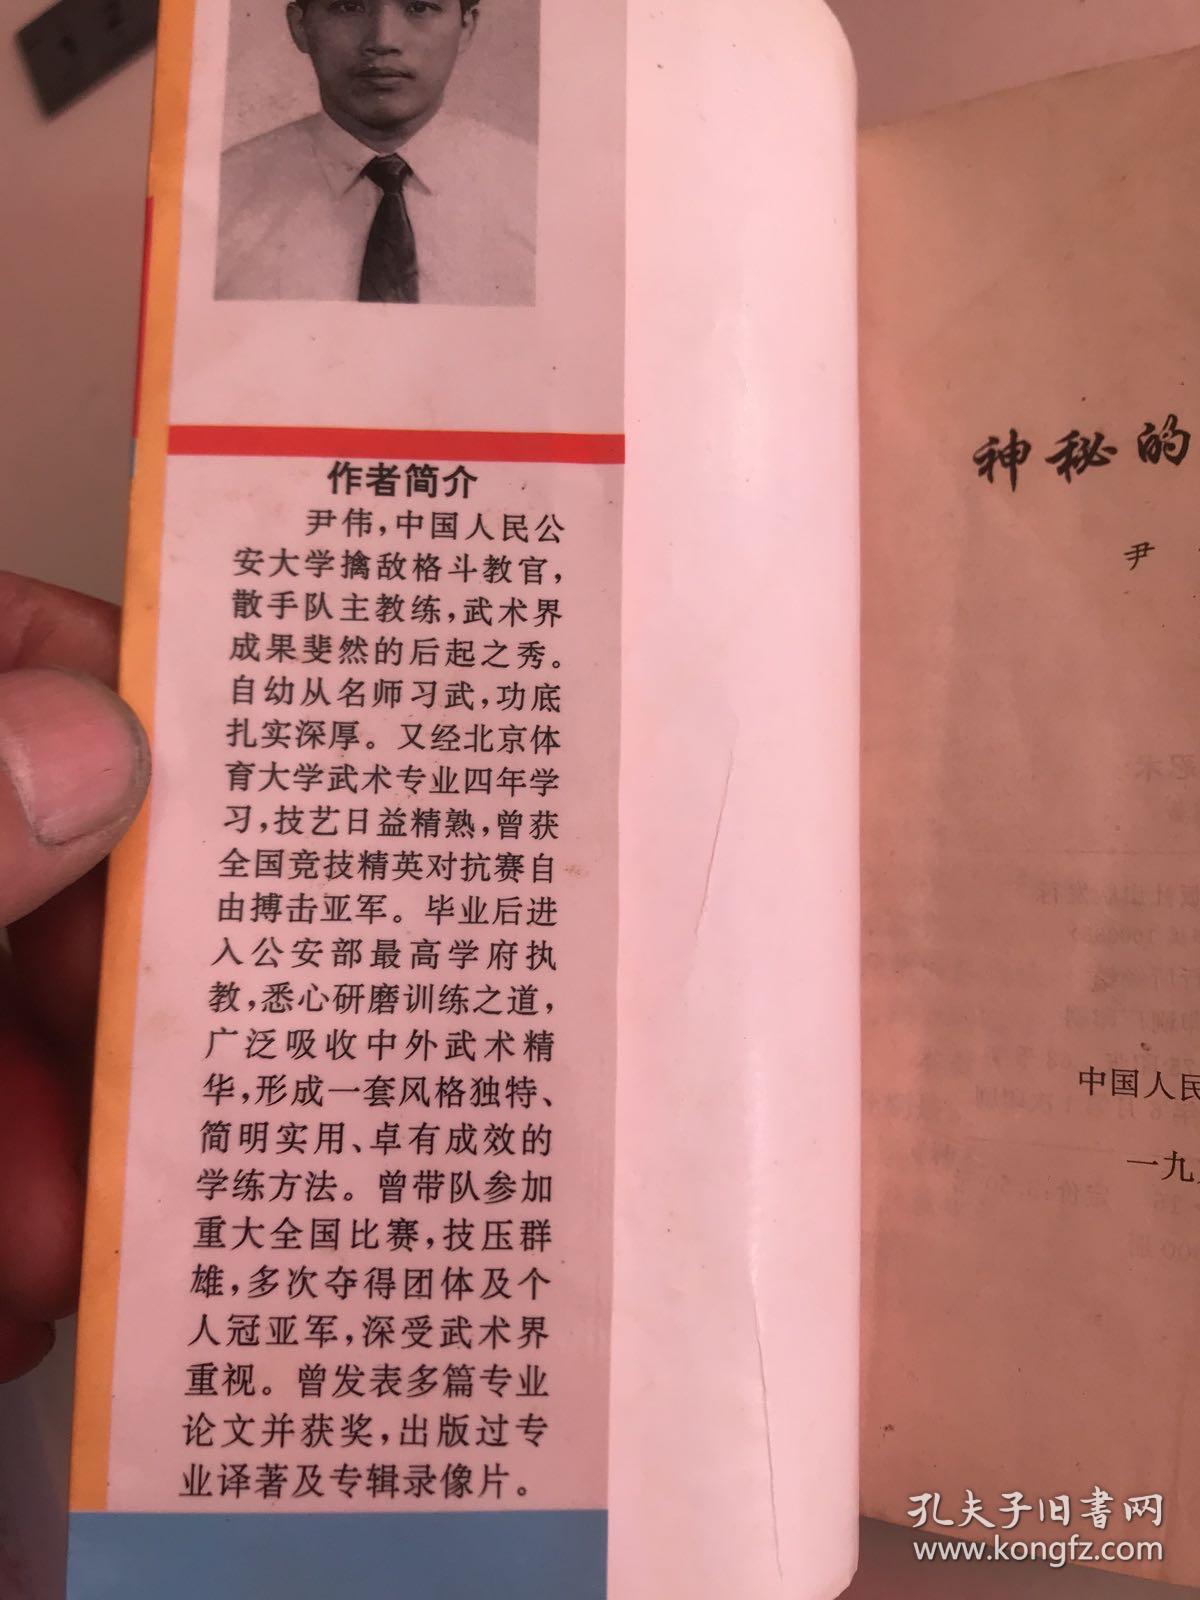 作者简介
尹伟，中国人民公
安大学擒敌格斗教官，
散手队主教练，武术界
成果斐然的后起之秀。
自幼从名师习武，功底
扎实深厚。又经北京体
育大学武术专业四年学
习，技艺日益精熟，曾获
全国竞技精英对抗赛自
由搏击亚军。毕业后进
入公安部最高学府执
教，悉心研磨训练之道，
广泛吸收中外武术精
华，形成一套风格独特、
简明实用、卓有成效的
学练方法。曾带队参加
重大全国比赛，技压群
雄，多次夺得团体及个
人冠亚军，深受武术界
重视。曾发表多篇专业
论文并获奖，出版过专
业译著及专辑录像片。
神秘的
尹
中国人民
一九
孔夫子旧书网
www.kongfz.com